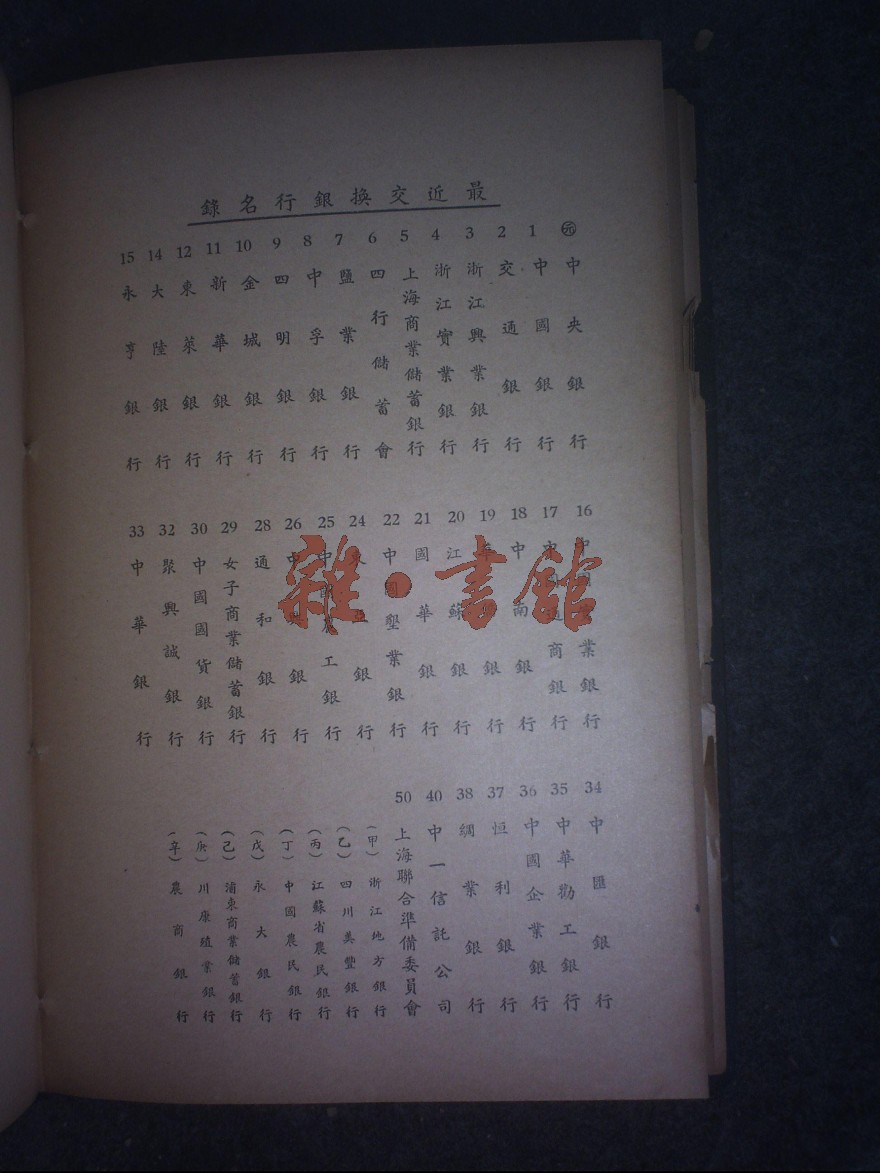 最近交換銀行名錄
㊄ 中央銀行
1 中國銀行
2 交通銀行
3 浙江興業銀行
4 浙江實業銀行
5 上海商業儲蓄銀行
6 四行儲蓄會
7 鹽業銀行
8 中孚銀行
9 四明銀行
10 金城銀行
11 新華銀行
12 東萊銀行
14 大陸銀行
15 永亨銀行
16 中業銀行
17 中商銀行
18 中南銀行
19 銀行
20 江蘇銀行
21 國華銀行
22 中國墾業銀行
24 銀行
25 中國工銀行
26 中銀行
28 通和銀行
29 女子商業儲蓄銀行
30 中國國貨銀行
32 聚興誠銀行
33 中華銀行
34 中匯銀行
35 中華勸工銀行
36 中國企業銀行
37 恒利銀行
38 綢業銀行
40 中一信託公司
50 上海聯合準備委員會
(甲) 浙江地方銀行
(乙) 四川美豐銀行
(丙) 江蘇省農民銀行
(丁) 中國農民銀行
(戊) 永大銀行
(己) 浦東商業儲蓄銀行
(庚) 川康殖業銀行
(辛) 農商銀行
雜·書館